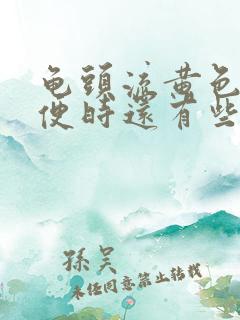 龟頭流黄色
便時還有些
孫吴
未经同意禁止转载